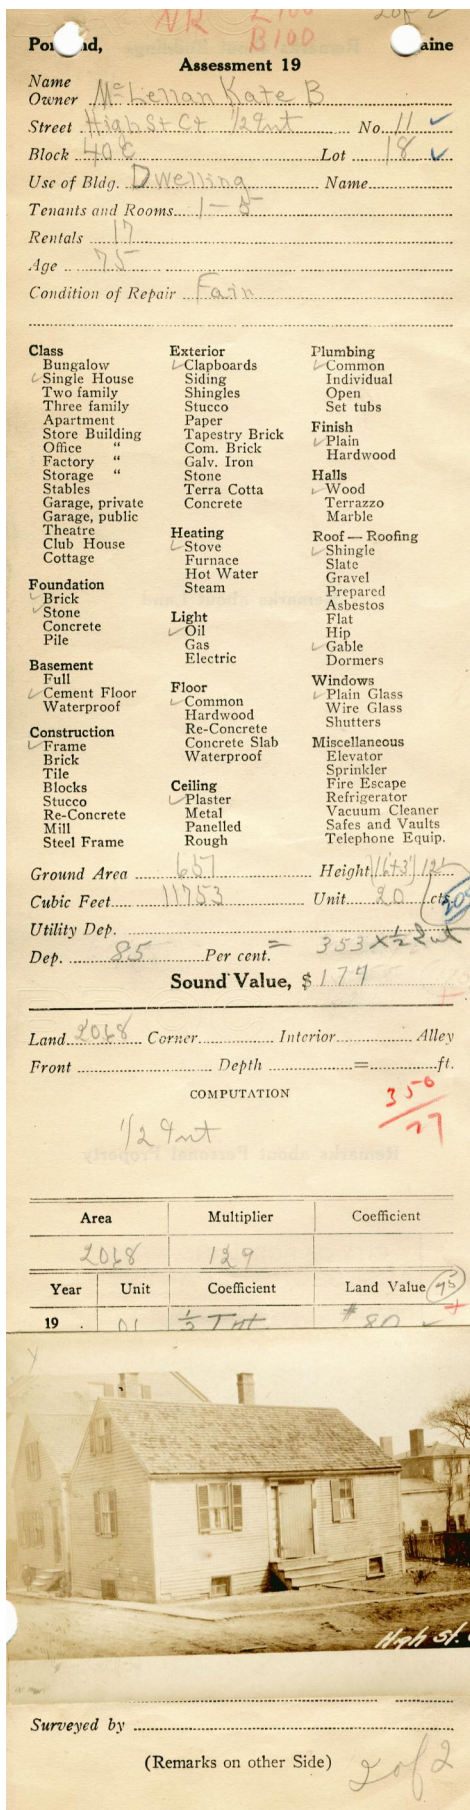 NR L100 2 of 2
B100
Portland, Maine
Assessment 19
Name
Owner McLellan Kate B
Street High St Ct 1/2 Int No. 11 ✓
Block 40C Lot 18 ✓
Use of Bldg. Dwelling Name
Tenants and Rooms 1-5
Rentals 17
Age 75
Condition of Repair Fair
Class
Bungalow
✓ Single House
Two family
Three family
Apartment
Store Building
Office "
Factory "
Storage "
Stables
Garage, private
Garage, public
Theatre
Club House
Cottage
Foundation
✓ Brick
✓ Stone
Concrete
Pile
Basement
Full
✓ Cement Floor
Waterproof
Construction
✓ Frame
Brick
Tile
Blocks
Stucco
Re-Concrete
Mill
Steel Frame
Exterior
✓ Clapboards
Siding
Shingles
Stucco
Paper
Tapestry Brick
Com. Brick
Galv. Iron
Stone
Terra Cotta
Concrete
Heating
✓ Stove
Furnace
Hot Water
Steam
Light
✓ Oil
Gas
Electric
Floor
✓ Common
Hardwood
Re-Concrete
Concrete Slab
Waterproof
Ceiling
✓ Plaster
Metal
Panelled
Rough
Plumbing
✓ Common
Individual
Open
Set tubs
Finish
✓ Plain
Hardwood
Halls
✓ Wood
Terrazzo
Marble
Roof — Roofing
✓ Shingle
Slate
Gravel
Prepared
Asbestos
Flat
Hip
✓ Gable
Dormers
Windows
✓ Plain Glass
Wire Glass
Shutters
Miscellaneous
Elevator
Sprinkler
Fire Escape
Refrigerator
Vacuum Cleaner
Safes and Vaults
Telephone Equip.
Ground Area 657 Height
Cubic Feet 11753 Unit 20 cts.
Utility Dep.
Dep. 85 Per cent. = 353 x 1/2 Int
Sound Value, $ 177
Land 2068 Corner Interior Alley
Front Depth = ft.
COMPUTATION
350
77
1/2 Int
Area Multiplier Coefficient
2068 129
Year Unit Coefficient Land Value 75
19 . 01 1/2 Int. $80 ✓
High St.
Surveyed by
(Remarks on other Side)
2 of 2